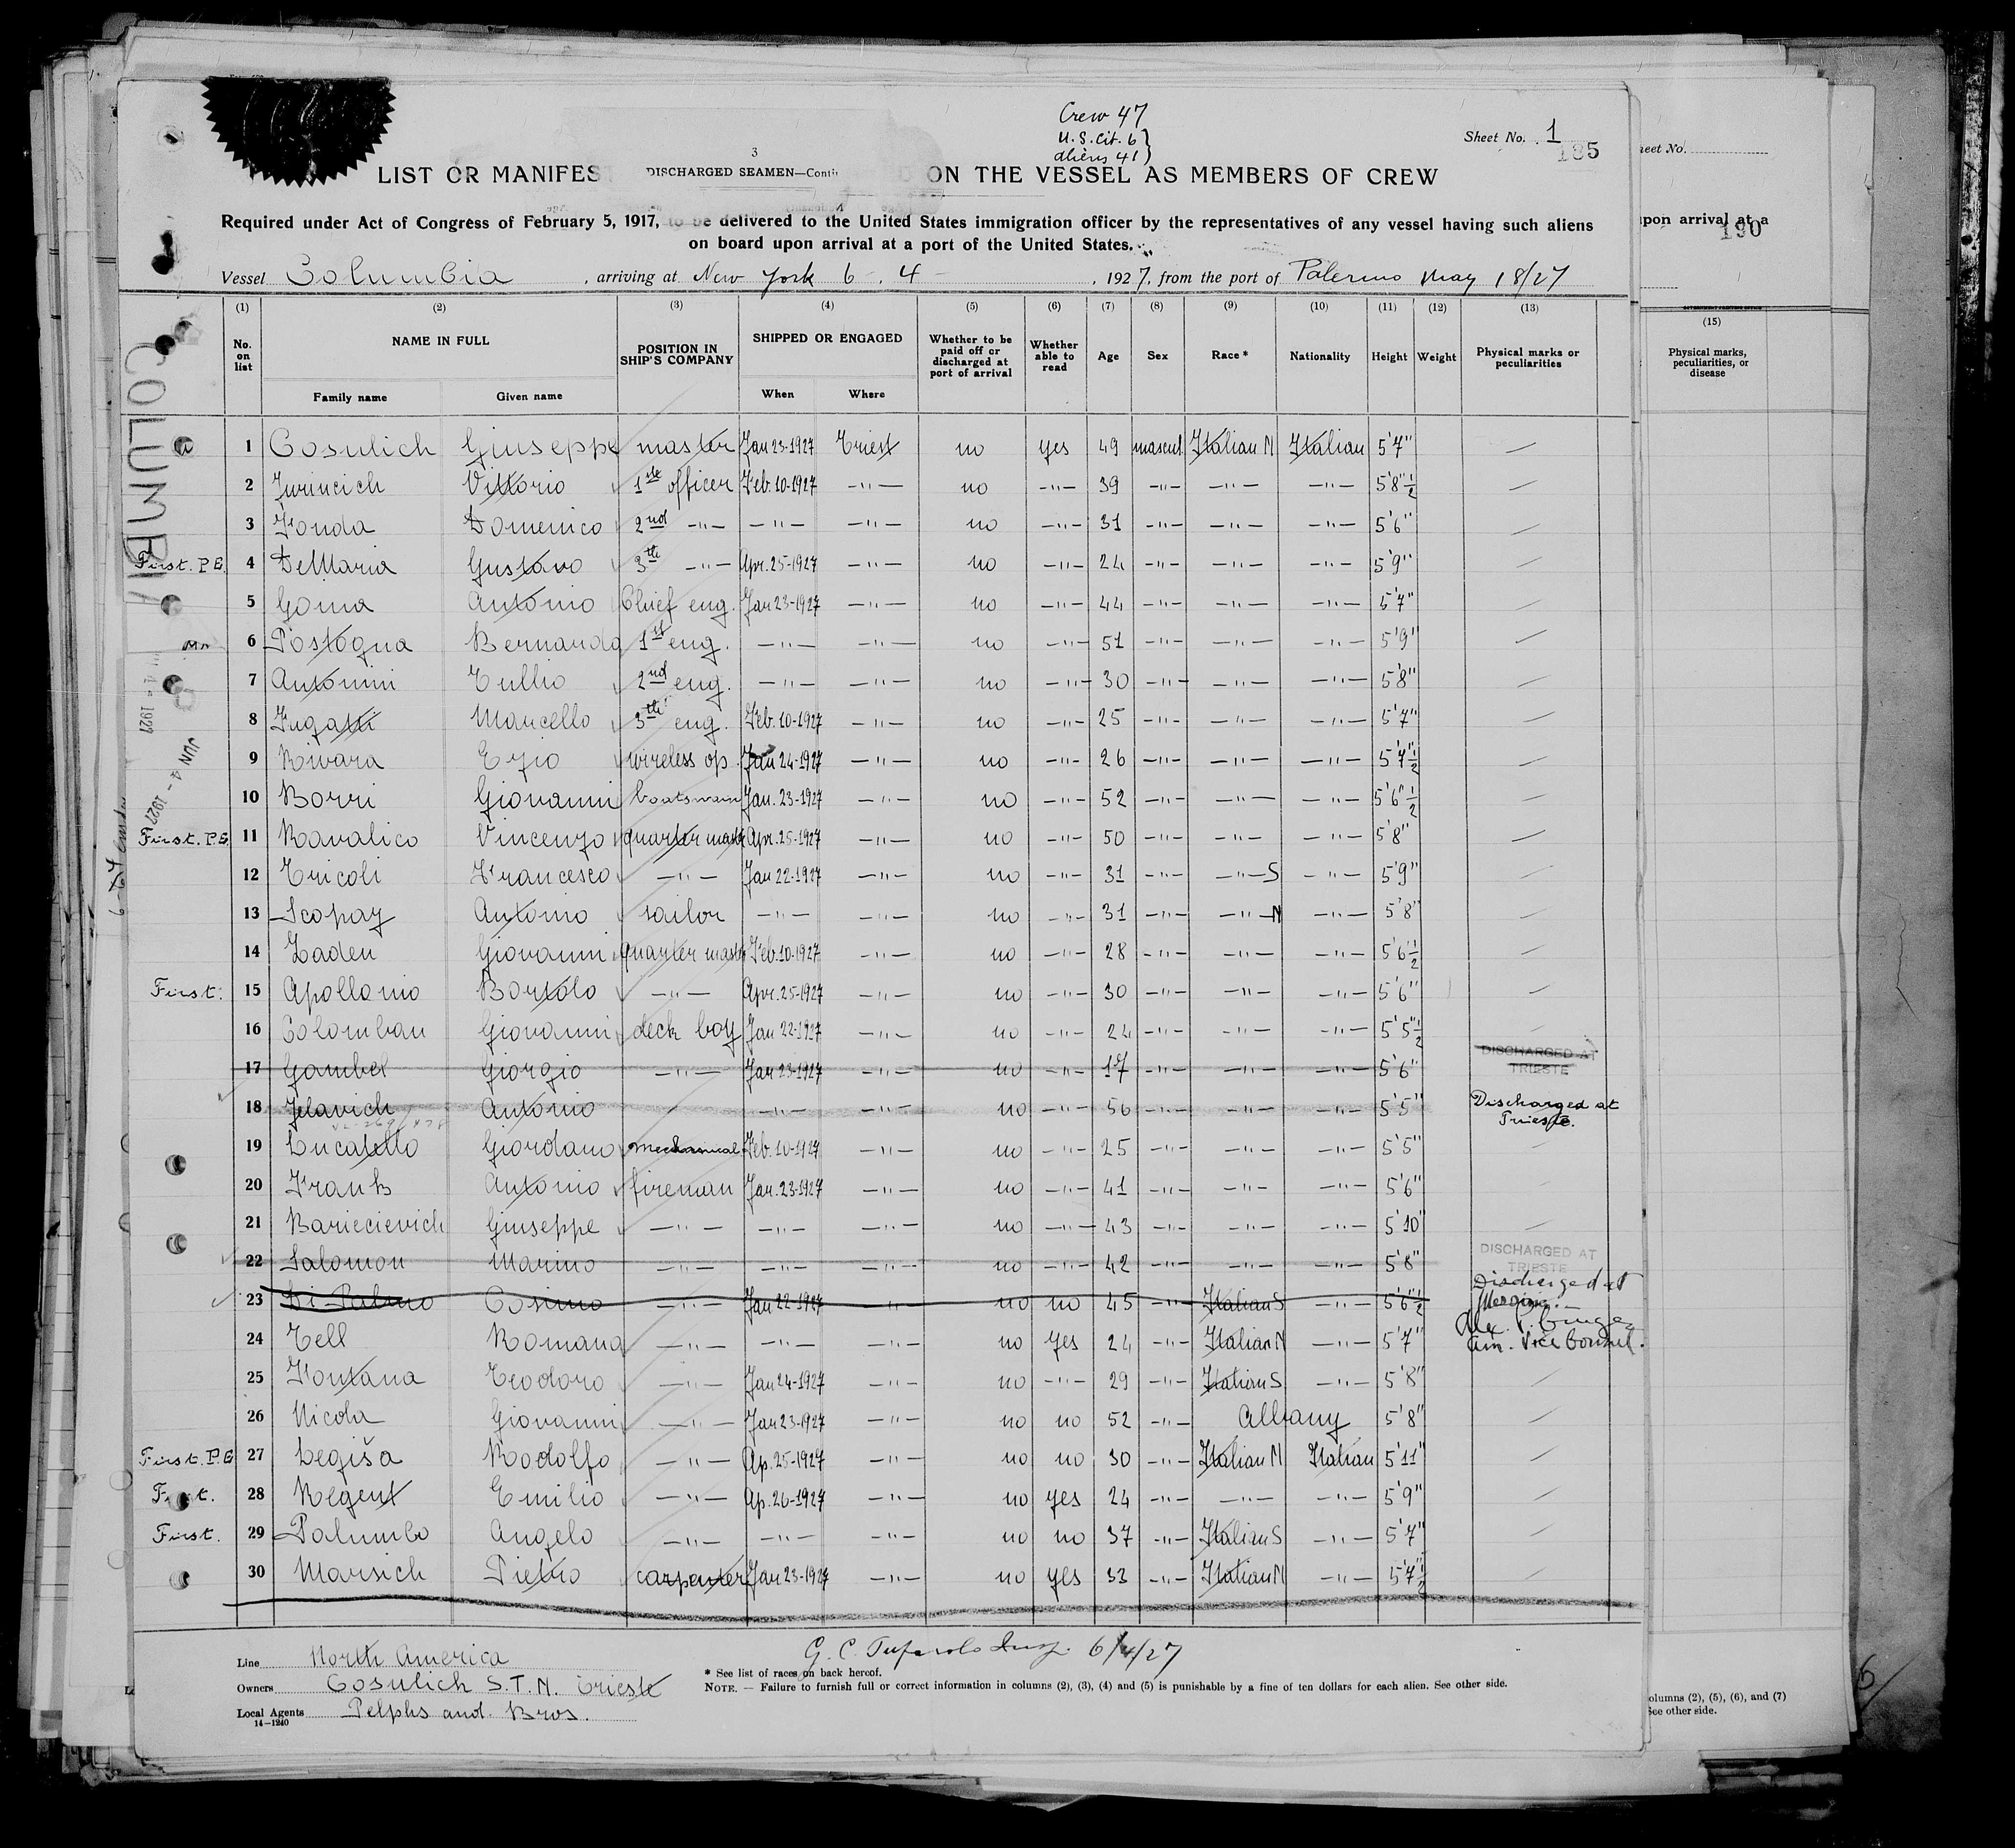 Crew 47
U.S. Cit. 6
aliens 41
Sheet No. 1
185
3
LIST OR MANIFES DISCHARGED SEAMEN—Conti ON THE VESSEL AS MEMBERS OF CREW
Required under Act of Congress of February 5, 1917, to be delivered to the United States immigration officer by the representatives of any vessel having such aliens
on board upon arrival at a port of the United States.
Vessel Columbia, arriving at New York 6 . 4, 1927, from the port of Palermo May 18/27
(1) (2) (3) (4) (5) (6) (7) (8) (9) (10) (11) (12) (13)
No. on list NAME IN FULL POSITION IN SHIP'S COMPANY SHIPPED OR ENGAGED Whether to be paid off or discharged at port of arrival Whether able to read Age Sex Race * Nationality Height Weight Physical marks or peculiarities
Family name Given name When Where
COLUMBIA
1 Cosulich Giuseppe master Jan 23-1927 Triest no yes 49 mascul. Italian N Italian 5'7" —
2 Jurincich Vittorio 1ste officer Feb. 10-1927 —"— no —"— 39 —"— —"— —"— 5'8"½ —
3 Fonda Domenico 2nd —"— —"— —"— no —"— 31 —"— —"— —"— 5'6" —
First. P.E. 4 DeMaria Gustavo 3th —"— Apr. 25-1927 —"— no —"— 24 —"— —"— —"— 5'9" —
5 Goina Antonio Chief eng. Jan 23-1927 —"— no —"— 44 —"— —"— —"— 5'7" —
6 Postogna Bernardo 1st eng. —"— —"— no —"— 51 —"— —"— —"— 5'9" —
7 Antonini Tullio 2nd eng. —"— —"— no —"— 30 —"— —"— —"— 5'8" —
8 Fugatti Marcello 3th eng. Feb. 10-1927 —"— no —"— 25 —"— —"— —"— 5'7" —
9 Rivara Ezio wireless op. Jan 24-1927 —"— no —"— 26 —"— —"— —"— 5'7"½ —
10 Borri Giovanni boatswain Jan. 23-1927 —"— no —"— 52 —"— —"— —"— 5'6"½ —
First. P.E. 11 Ravalico Vincenzo quarter master Apr. 25-1927 —"— no —"— 50 —"— —"— —"— 5'8" —
12 Tricoli Francesco —"— Jan 22-1927 —"— no —"— 31 —"— —"— S —"— 5'9" —
13 Scopaz Antonio sailor —"— —"— no —"— 31 —"— —"— N —"— 5'8" —
14 Zaden Giovanni quarter master Feb. 10-1927 —"— no —"— 28 —"— —"— —"— 5'6½ —
First. 15 Apollonio Bortolo —"— Apr. 25-1927 —"— no —"— 30 —"— —"— —"— 5'6" —
16 Colomban Giovanni deck boy Jan 22-1927 —"— no —"— 24 —"— —"— —"— 5'5"½ —
17 Gambel Giorgio —"— Jan 23-1927 —"— no —"— 17 —"— —"— —"— 5'6" DISCHARGED AT TRIESTE
18 Jelavich Antonio —"— —"— no —"— 56 —"— —"— —"— 5'5" Discharged at Trieste.
19 Lucatello Giordano mechanical Feb. 10-1927 —"— no —"— 25 —"— —"— —"— 5'5"
20 Frank Antonio fireman Jan. 23-1927 —"— no —"— 41 —"— —"— —"— 5'6"
21 Bariecievich Giuseppe —"— —"— —"— no —"— 43 —"— —"— —"— 5'10" —
22 Salomon Marino —"— —"— —"— no —"— 42 —"— —"— —"— 5'8" DISCHARGED AT TRIESTE
23 Di Palmo Cosimo —"— Jan 22-1927 —"— no no 45 —"— Italian S —"— 5'6"½ Discharged at
24 Tell Romano —"— —"— —"— no yes 24 —"— Italian N —"— 5'7" Am. Vice Consul.
25 Fontana Teodoro —"— Jan 24-1927 —"— no —"— 29 —"— Italian S —"— 5'8" —
26 Nicola Giovanni —"— Jan 23-1927 —"— no no 52 —"— Albany 5'8" —
First. P.E. 27 Legiša Rodolfo —"— Ap. 25-1927 —"— no no 30 —"— Italian N Italian 5'11" —
First. 28 Regent Emilio —"— Ap. 26-1927 —"— no yes 24 —"— —"— —"— 5'9" —
First. 29 Palumbo Angelo —"— —"— —"— no no 37 —"— Italian S —"— 5'7" —
30 Marsich Pietro carpenter Jan 23-1927 —"— no yes 33 —"— Italian N —"— 5'7"½ —
JUN 4 - 1927
Line North America
Owners Cosulich S.T.N. Trieste
Local Agents Pelphs and. Bros.
14—1240
6/4/27
* See list of races on back hereof.
NOTE. — Failure to furnish full or correct information in columns (2), (3), (4) and (5) is punishable by a fine of ten dollars for each alien. See other side.
heet No.
upon arrival at a
190
(15)
Physical marks, peculiarities, or disease
olumns (2), (5), (6), and (7)
See other side.